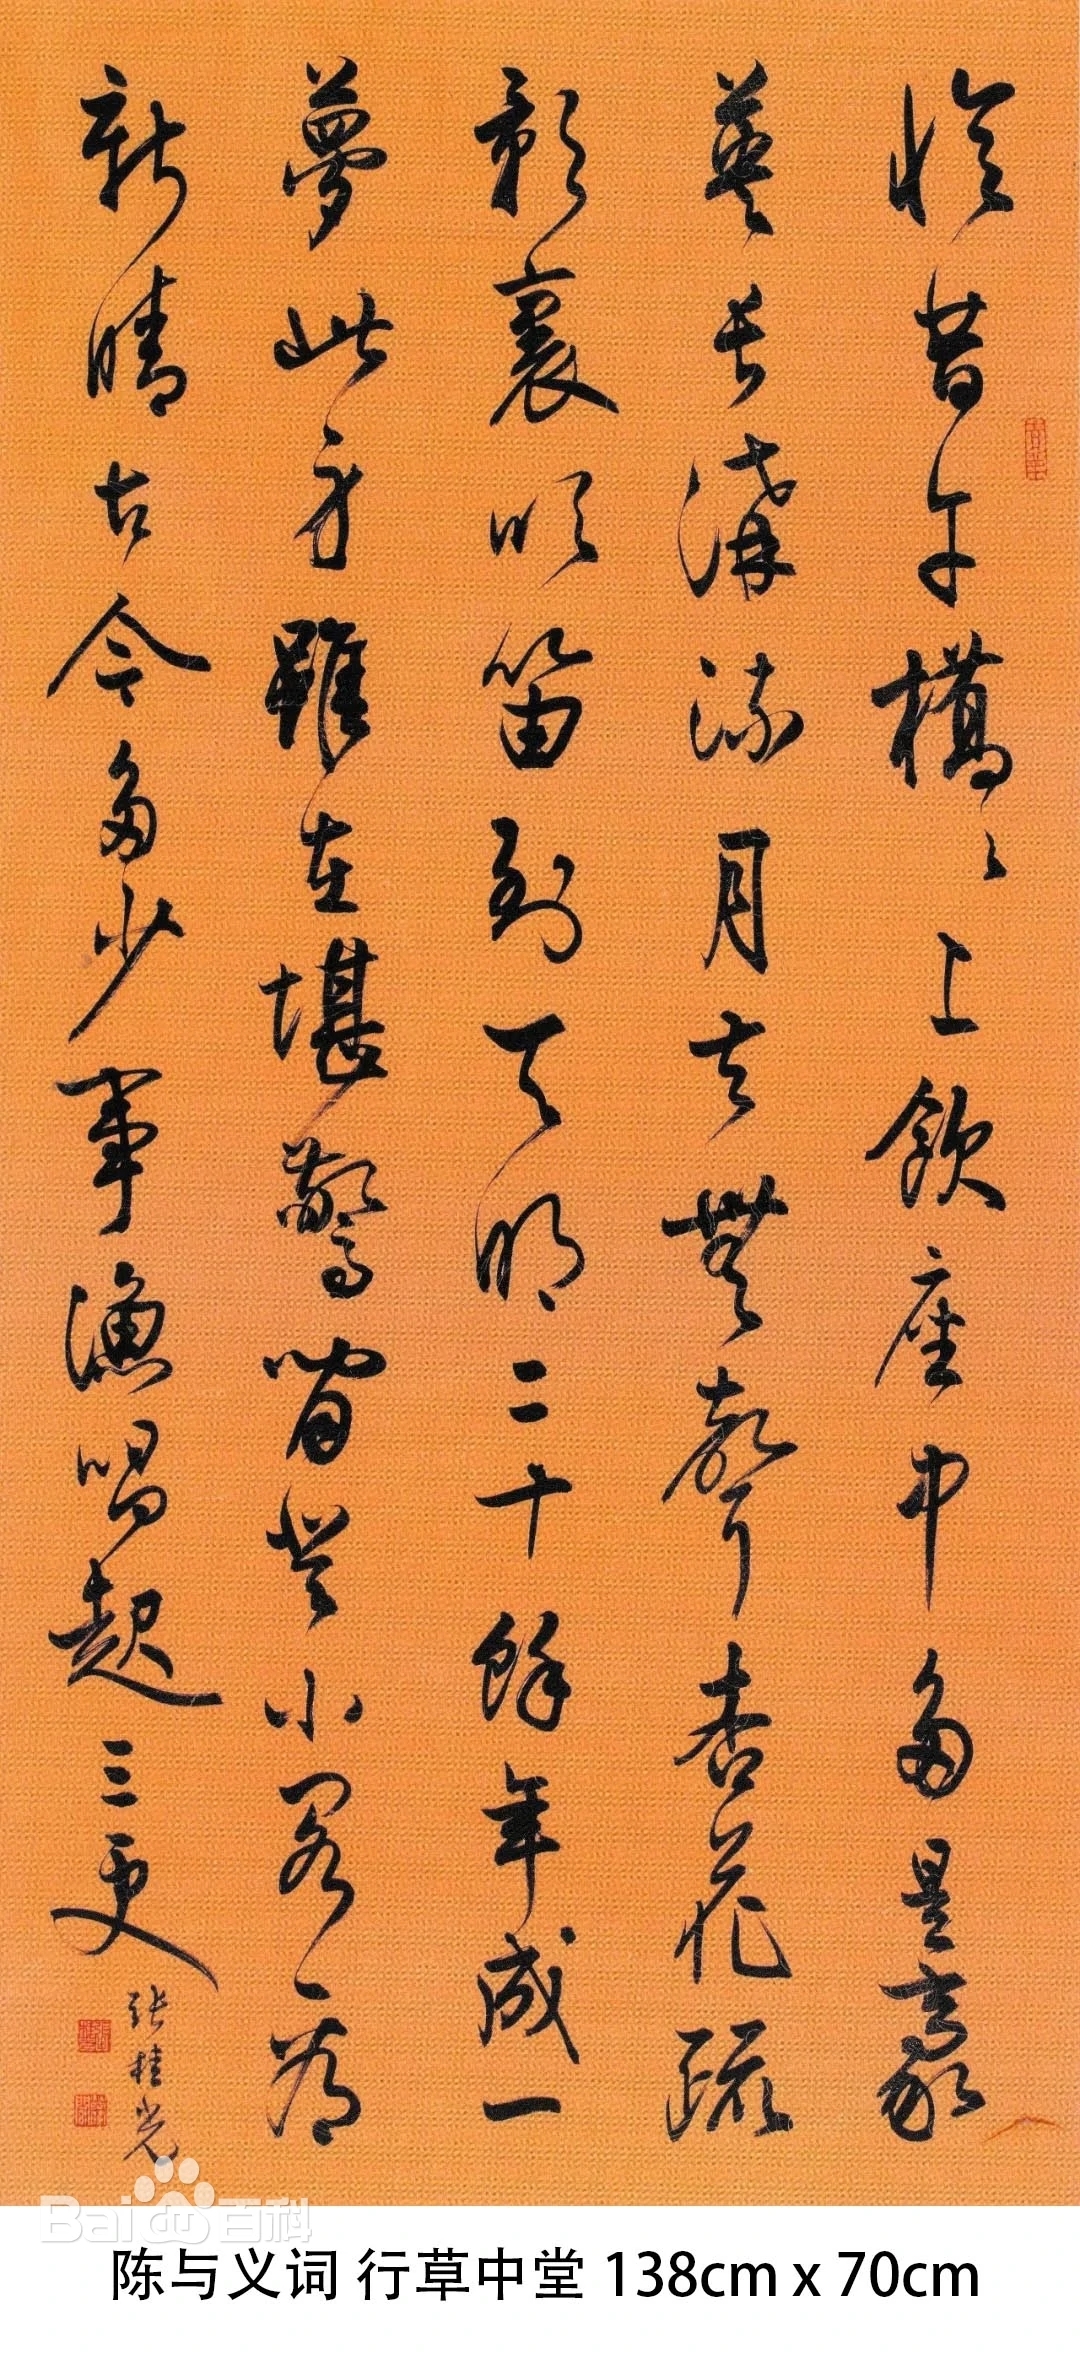 憶昔午橋橋上飲座中多是豪
英長溝流月去無聲杏花疏
影裏吹笛到天明二十餘年成一
夢此身雖在堪驚閒登小閣看
新晴古今多少事漁唱起三更
張桂光
Bai 百科
陈与义词 行草中堂 138cm x 70cm